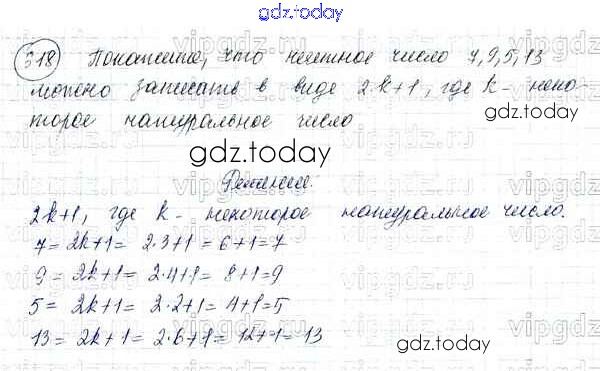 gdz.today
318 Покажите, что нечетное число 7, 9, 5, 13
можно записать в виде 2k+1, где k - неко-
торое натуральное число
gdz.today
gdz.today
Решение.
2k+1, где k - некоторое натуральное число.
7 = 2k+1 = 2·3+1 = 6+1=7
9 = 2k+1 = 2·4+1 = 8+1=9
5 = 2k+1 = 2·2+1 = 4+1=5
13 = 2k+1 = 2·6+1 = 12+1=13
gdz.today